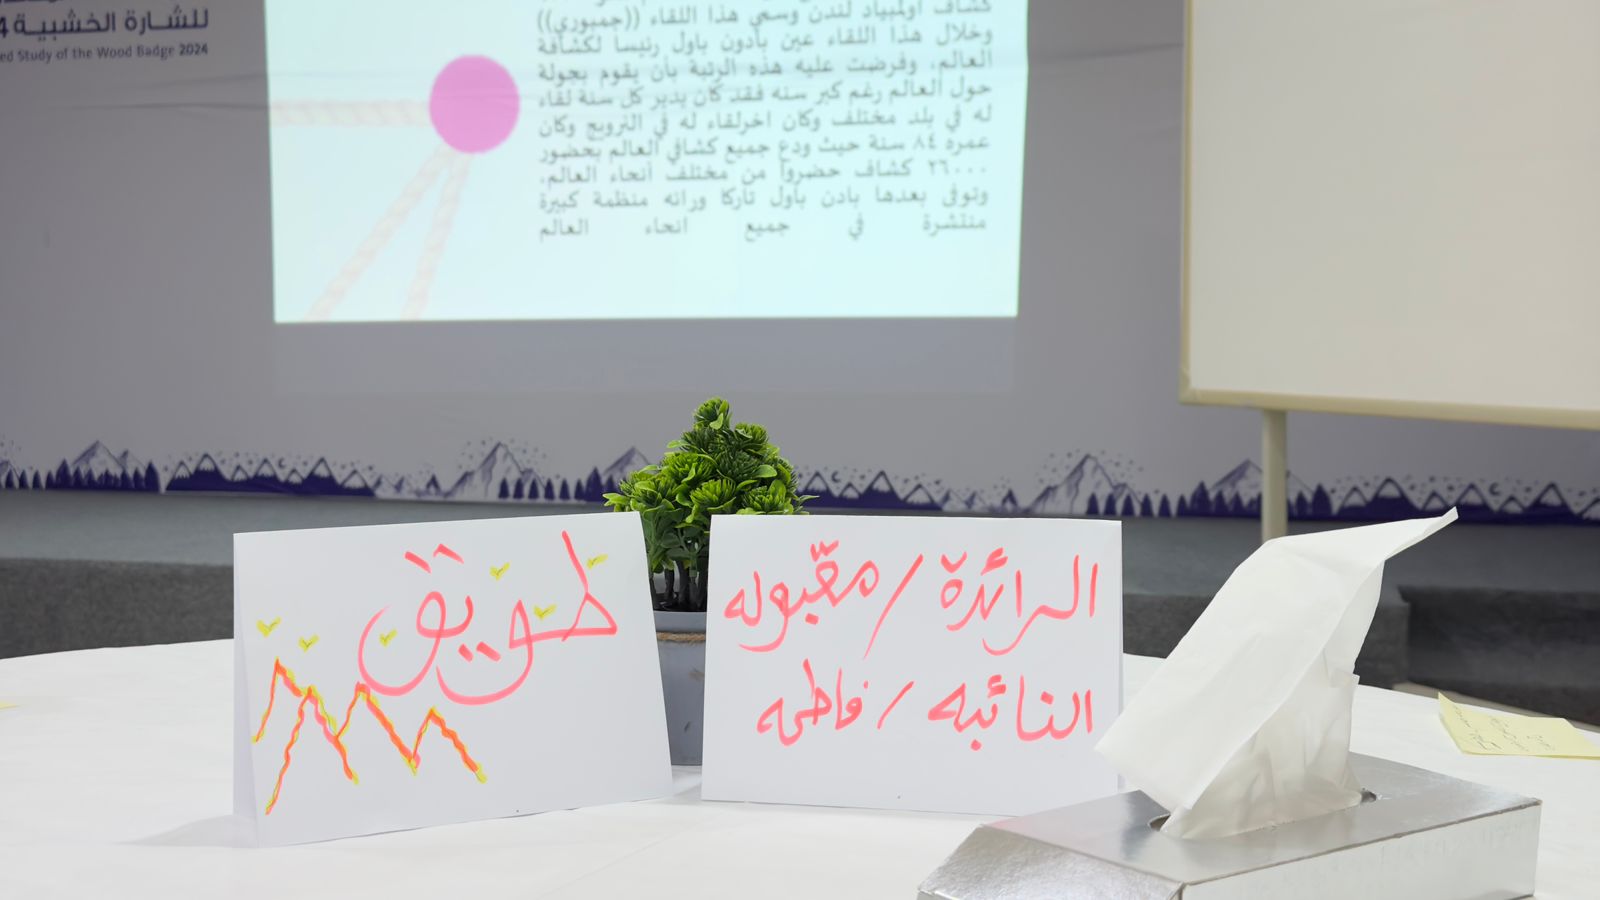 للشارة الخشبية
ed Study of the Wood Badge 2024
كشاف اولمبياد لندن وسمي هذا اللقاء ((جمبوري))
وخلال هذا اللقاء عين بادون باول رئيسا لكشافة
العالم، وفرضت عليه هذه الرتبة بأن يقوم بجولة
حول العالم رغم كبر سنه فقد كان يدير كل سنة لقاء
له في بلد مختلف وكان اخرلقاء له في النرويج وكان
عمره ٨٤ سنة حيث ودع جميع كشافي العالم بحضور
٢٦٠٠٠ كشاف حضروا من مختلف أنحاء العالم.
وتوفى بعدها بادن باول تاركا ورائه منظمة كبيرة
منتشرة في جميع انحاء العالم
طويق
الرائدة / مقبوله
النائبه / فاطمه